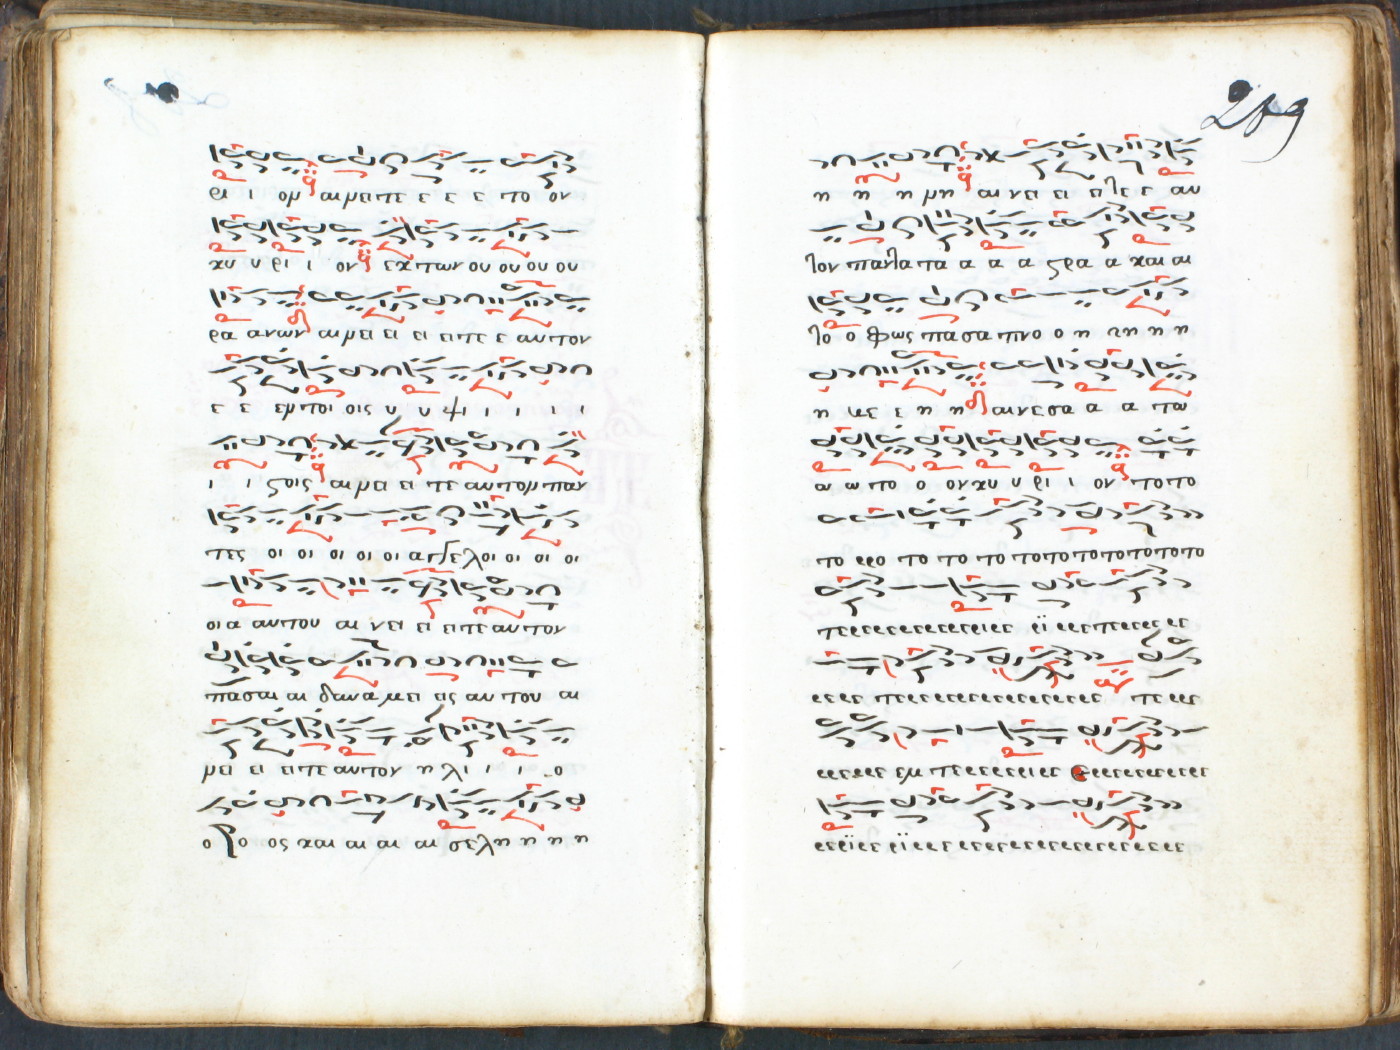 ρι ι ον αι νει τε ε ε ε το ον
κυ υ ρι ι ον εκ των ου ου ου ου
ρα α νων αι νει ει ει ει τε ε αυ τον
ε ε εν τοι οις υ υ ψι ι ι ι ι
ι ι στοις αι νει ει τε αυ τον παν
τες οι οι οι οι οι αγγελοι οι οι οι
οι α αυ του αι νει ει ει τε αυ τον
πασαι αι δυνα μεις εις αυ του αι
νει ει ει τε αυ τον η λι ι ι ο
ο ο ος και αι αι αι σε λη η η η
289
η η η νη αι νει ει ει τε ε αυ
τον παντα τα α α α στρα α και αι
το ο φως πασα πνο ο η η η η
η με ε η η αινεσα α α τω
ω ω το ο ον κυ υ ρι ι ον το το
το ρρο το το το το το το το το το το
τε ε ε ε ε ε ε ε ει ε ε εϊ ε ε ε τε ε ε ε ε
ε ε ε ε τε ε ε ε ε ε ε ε ε ε ε τε ε ε
ε ε ε ε ε εμ τε ε ε ε ε ει ε ε ε ε ε ε ε ε ε ε ε
ε ε εϊ ε ε εϊ ε ε ε ε ε ε ε ε ε ε ε ε ε ε ε ε ε